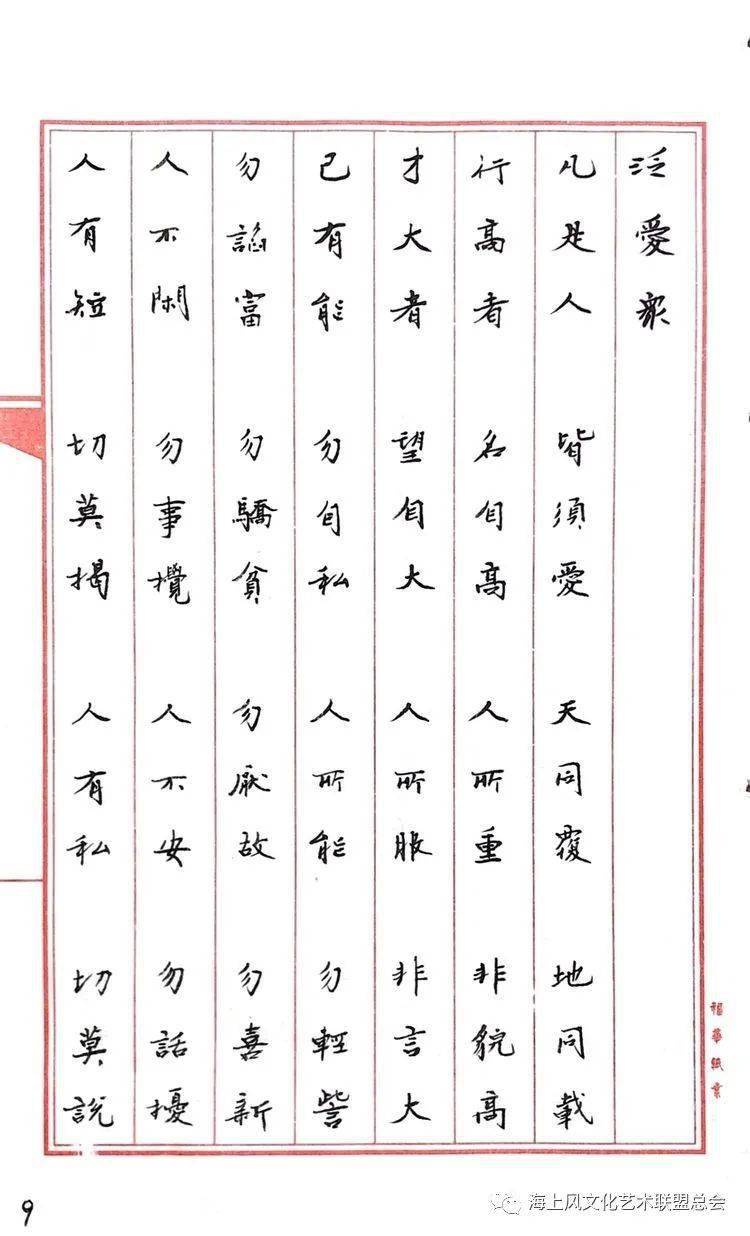 泛愛眾
凡是人 皆須愛 天同覆 地同載
行高者 名自高 人所重 非貌高
才大者 望自大 人所服 非言大
己有能 勿自私 人所能 勿輕訾
勿諂富 勿驕貧 勿厭故 勿喜新
人不閑 勿事攪 人不安 勿話擾
人有短 切莫揭 人有私 切莫說
福華紙業
9
海上风文化艺术联盟总会